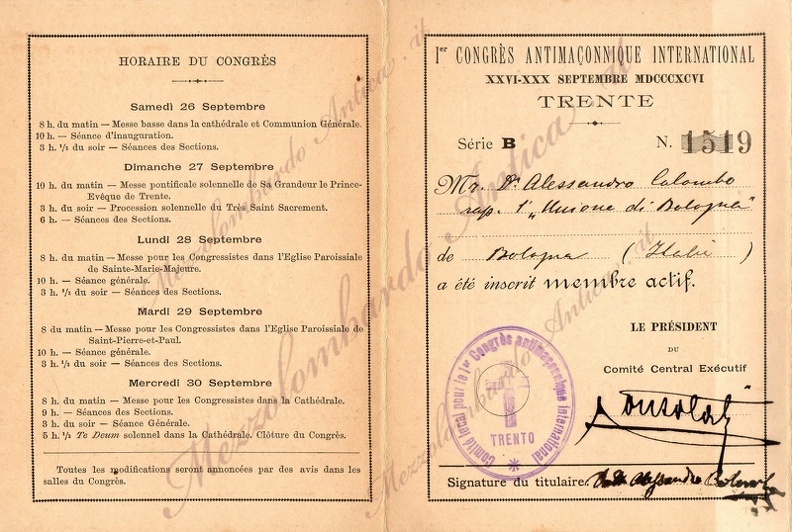 HORAIRE DU CONGRÈS
Samedì 26 Septembre
8 h. du matin — Messe basse dans la cathédrale et Communion Générale.
10 h. — Séance d'inauguration.
3 h. ¹/₂ du soir — Séances des Sections.
Dimanche 27 Septembre
10 h. du matin — Messe pontificale solennelle de Sa Grandeur le Prince-
Evêque de Trente.
3 h. du soir — Procession solennelle du Très Saint Sacrement.
6 h. — Séances des Sections.
Lundi 28 Septembre
8 h. du matin — Messe pour les Congressistes dans l'Eglise Paroissiale
de Sainte-Marie-Majeure.
10 h. — Séance générale.
3 h. ¹/₂ du soir — Séances des Sections.
Mardi 29 Septembre
8 h du matin — Messe pour les Congressistes dans l'Eglise Paroissiale de
Saint-Pierre-et-Paul.
10 h. — Séance générale.
3 h. ¹/₂ du soir — Séances des Sections.
Mercredi 30 Septembre
8 h. du matin — Messe pour les Congressistes dans la Cathédrale.
9 h. — Séances des Sections.
3 h. du soir — Séance Générale.
5 h. ¹/₂ Te Deum solennel dans la Cathédrale. Clôture du Congrès.
Toutes les modifications seront annoncées par des avis dans les
salles du Congrès.
Iᵉʳ CONGRÈS ANTIMAÇONNIQUE INTERNATIONAL
XXVI-XXX SEPTEMBRE MDCCCXCVI
TRENTE
Série B N. 1519
Mr. Dr. Alessandro Colombo
rap. l' „Unione di Bologna"
de Bologna (Italie)
a été inscrit membre actif.
LE PRÉSIDENT
DU
Comité Central Exécutif
Comité local pour le 1er Congrès antimaçonnique international
TRENTO
Signature du titulaire: Alessandro Colombo
Mezzolombardo Antica.it
Mezzolombardo Antica.it
Mezzolombardo Antica.it